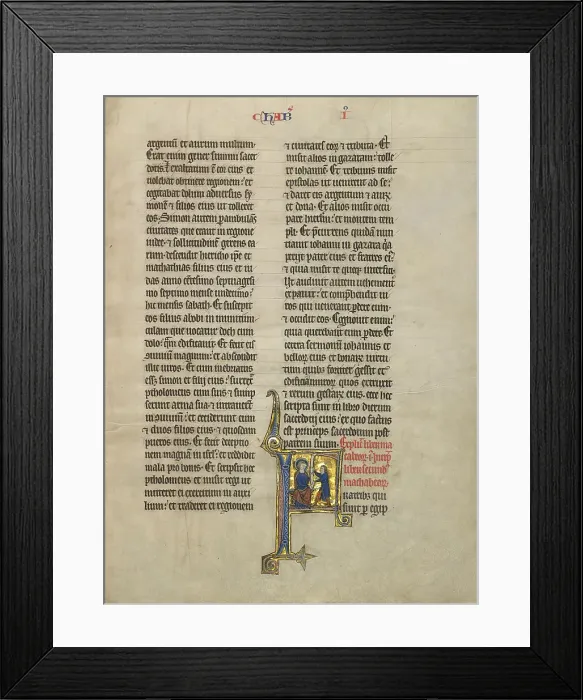 CHAB I
argentū et aurum multum.
Erat enim gener summi sacer
dotis. Et exaltatum ē cor eius et
volebat obtinere regionem: et
cogitabat dolum adversus sy
monē & filios eius ut tolleret
eos. Simon autem pambulās
civitates que erant in regione
iudee. & sollicitudinē gerens ea
rum. descendit hiericho ip̄e et
mathathias filius eius et iu
das anno cētesimo septuagesi
mo septimo mense undecimo:
hic mensis sabath. Et suscepit
eos filius abobi in munitiun
culam que vocatur doch cum
dolo: quā edificavit. Et fecit eis
magnum: et abscondit
illic viros. Et cum inebriatus
eēt simon et filij eius: surrexit
ptholomeus cum suis & sump
serunt arma sua & intraverūt
in et occiderunt eum
& duos filios eius: & quosdam
pueros eius. Et fecit deceptio
nem magnam in isrl. et reddidit
mala pro bonis. Et scripsit hec
ptholomeus et misit regi ut
mitteret ei exercitum in auxi
lium: et traderet ei regionem
& civitates eoꝝ & tributa. Et
misit alios in gazaram: tolle
re iohannem. Et tribunis misit
epistolas ut venirent ad se:
& daret eis argentum & aurū
et dona. Et alios misit occu
pare hierlm: et montem tem
pli. Et p̄currens quidā nun
tiavit iohanni in gazara q̇a
perijt pater eius et fratres ei:
& quia misit te quoqꝫ interfici.
Ut audivit autem vehement
expavit: et comp̄hendit vi
ros qui venerant p̄dere eum.
& occidit eos. Cognovit enim:
quia querebant eum p̄dere. Et
cetera sermonū iohannis et
belloꝝ eius et bonaꝝ virtu
tum quibꝫ fortiter gessit et
edificii muroꝝ quos extruxit
& rerum gestaꝝ eius. ecce hec
scripta sunt in libro dierum
sacerdotij eius: ex quo factus
est princeps sacerdotum post
patrem suum. Explic̄ liber ma
chabeoꝝ. i. Incip̄
liber secund
machabeoꝝ.
Fratribꝫ qui
sunt p egip